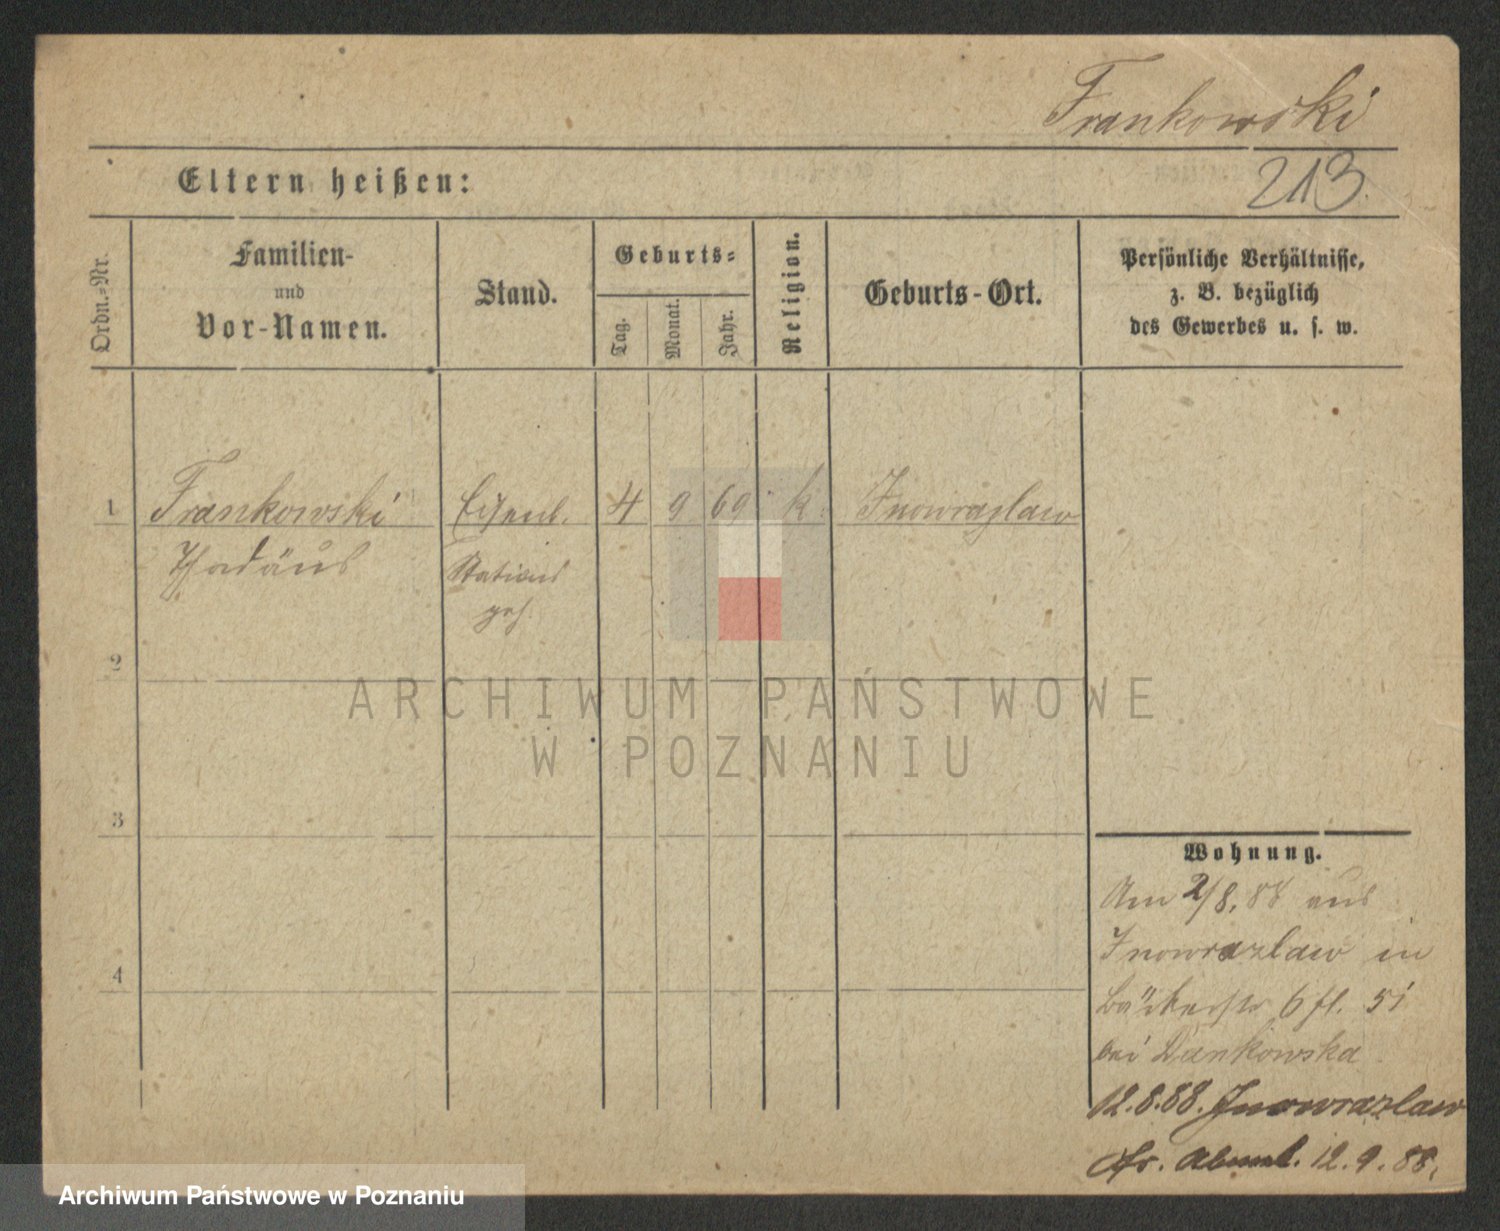 Frankowski
Eltern heißen:
213.
Ordn.-Nr.
Familien-
und
Vor-Namen.
Stand.
Geburts-
Tag.
Monat.
Jahr.
Religion.
Geburts-Ort.
Persönliche Verhältnisse,
z. B. bezüglich
des Gewerbes u. s. w.
1 Frankowski Eisenb. 4 9 69 k. Inowrazlaw
Thadäus Stations
geh.
2
3
4
ARCHIWUM PAŃSTWOWE
W POZNANIU
Wohnung.
Am 2/8.88 aus
Inowrazlaw in
Bäckerstr 6 fl. 51
bei Dankowska
12.8.88. Inowrazlaw
12.9.88.
Archiwum Państwowe w Poznaniu